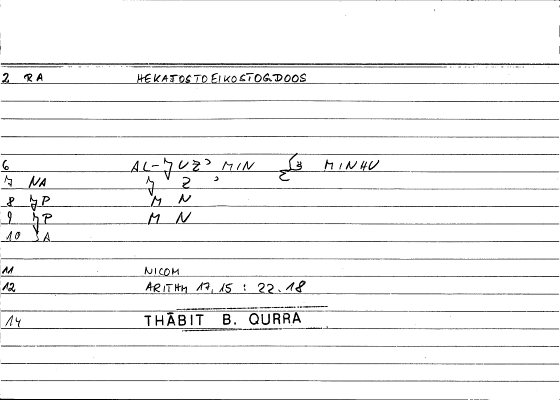 2 RA HEKATOSTOEIKOSTOGDOOS
6 AL-ǦUZʾ MIN MINHU
7 NA Ǧ Z ʾ
8 ǦP M N
9 ǦP M N
10
11 NICOM
12 ARITHM 17,15 : 22.18
14 THĀBIT B. QURRA